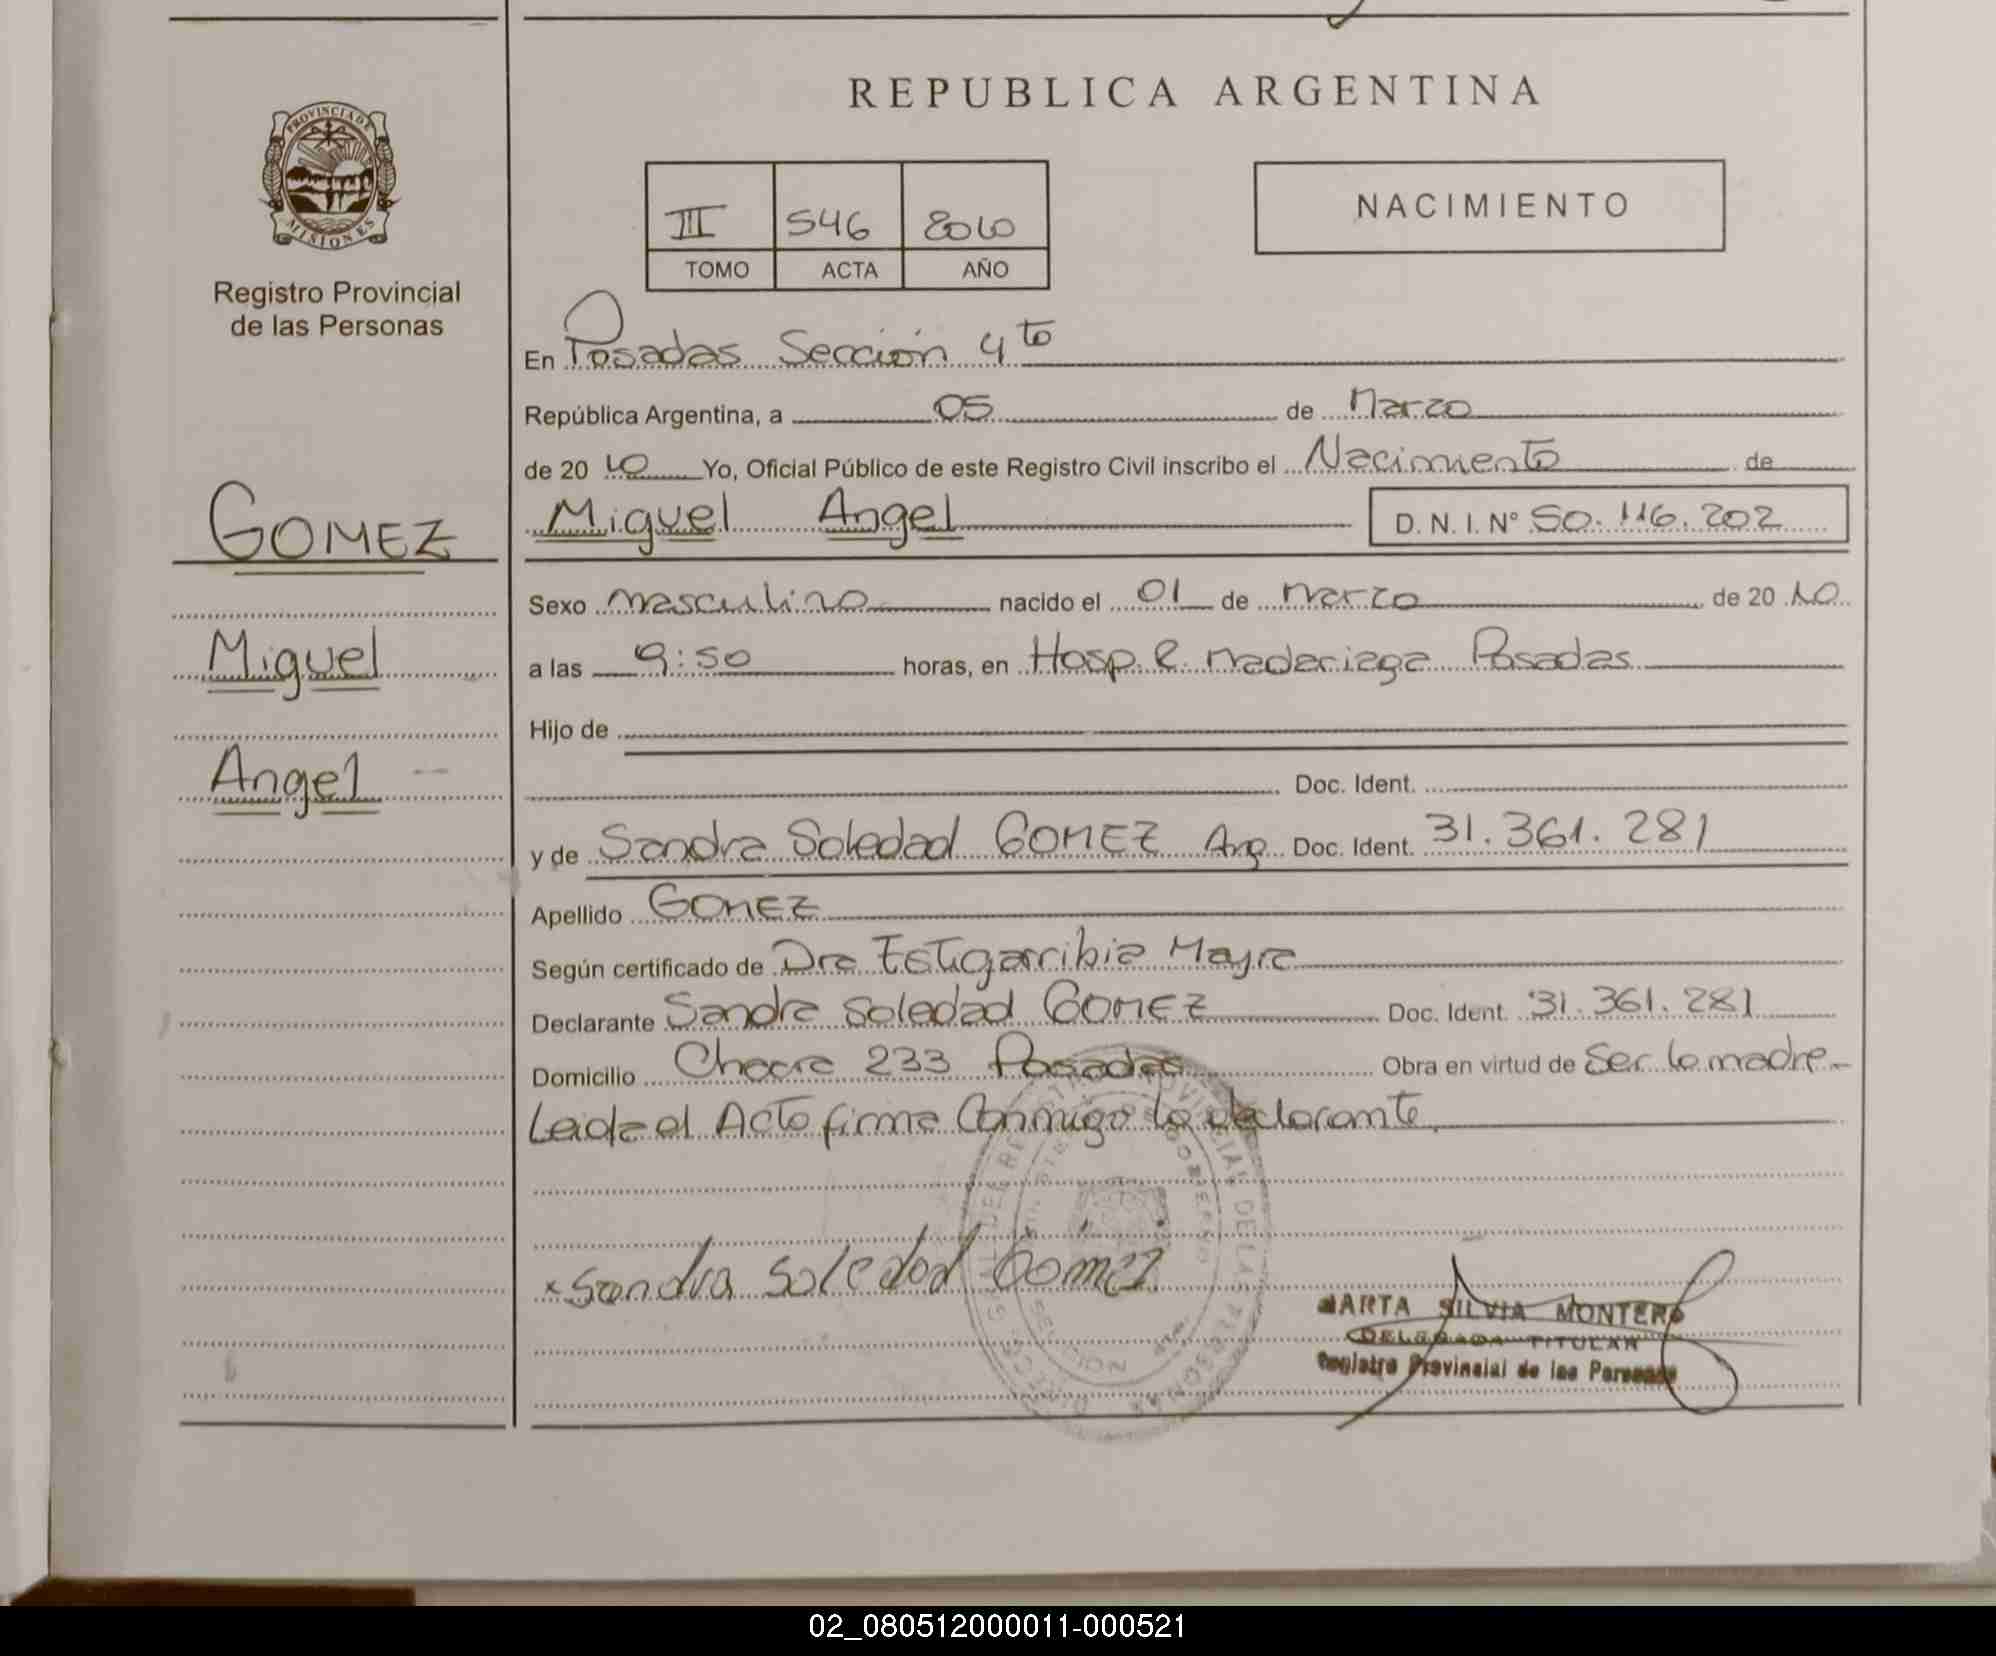 REPUBLICA ARGENTINA
PROVINCIA DE
MISIONES
Registro Provincial
de las Personas
III 546 2010
TOMO ACTA AÑO
NACIMIENTO
En Posadas Sección 4to
República Argentina, a 05 de Marzo
de 20 10 Yo, Oficial Público de este Registro Civil inscribo el Nacimiento de
Miguel Angel D. N. I. Nº 50.116.202
GOMEZ
Miguel
Angel
Sexo masculino nacido el 01 de marzo de 20 10
a las 9:50 horas, en Hosp. R. Madariaga Posadas
Hijo de
Doc. Ident.
y de Sandra Soledad GOMEZ Arg. Doc. Ident. 31.361.281
Apellido GOMEZ
Según certificado de Dra Estigarribia Mayra
Declarante Sandra Soledad GOMEZ Doc. Ident. 31.361.281
Domicilio Chacra 233 Posadas Obra en virtud de Ser la madre
Leida el Acta firma Conmigo la declarante.
x Sandra Soledad Gomez
MARTA SILVIA MONTERO
DELEGADA TITULAR
Registro Provincial de las Personas
02_080512000011-000521